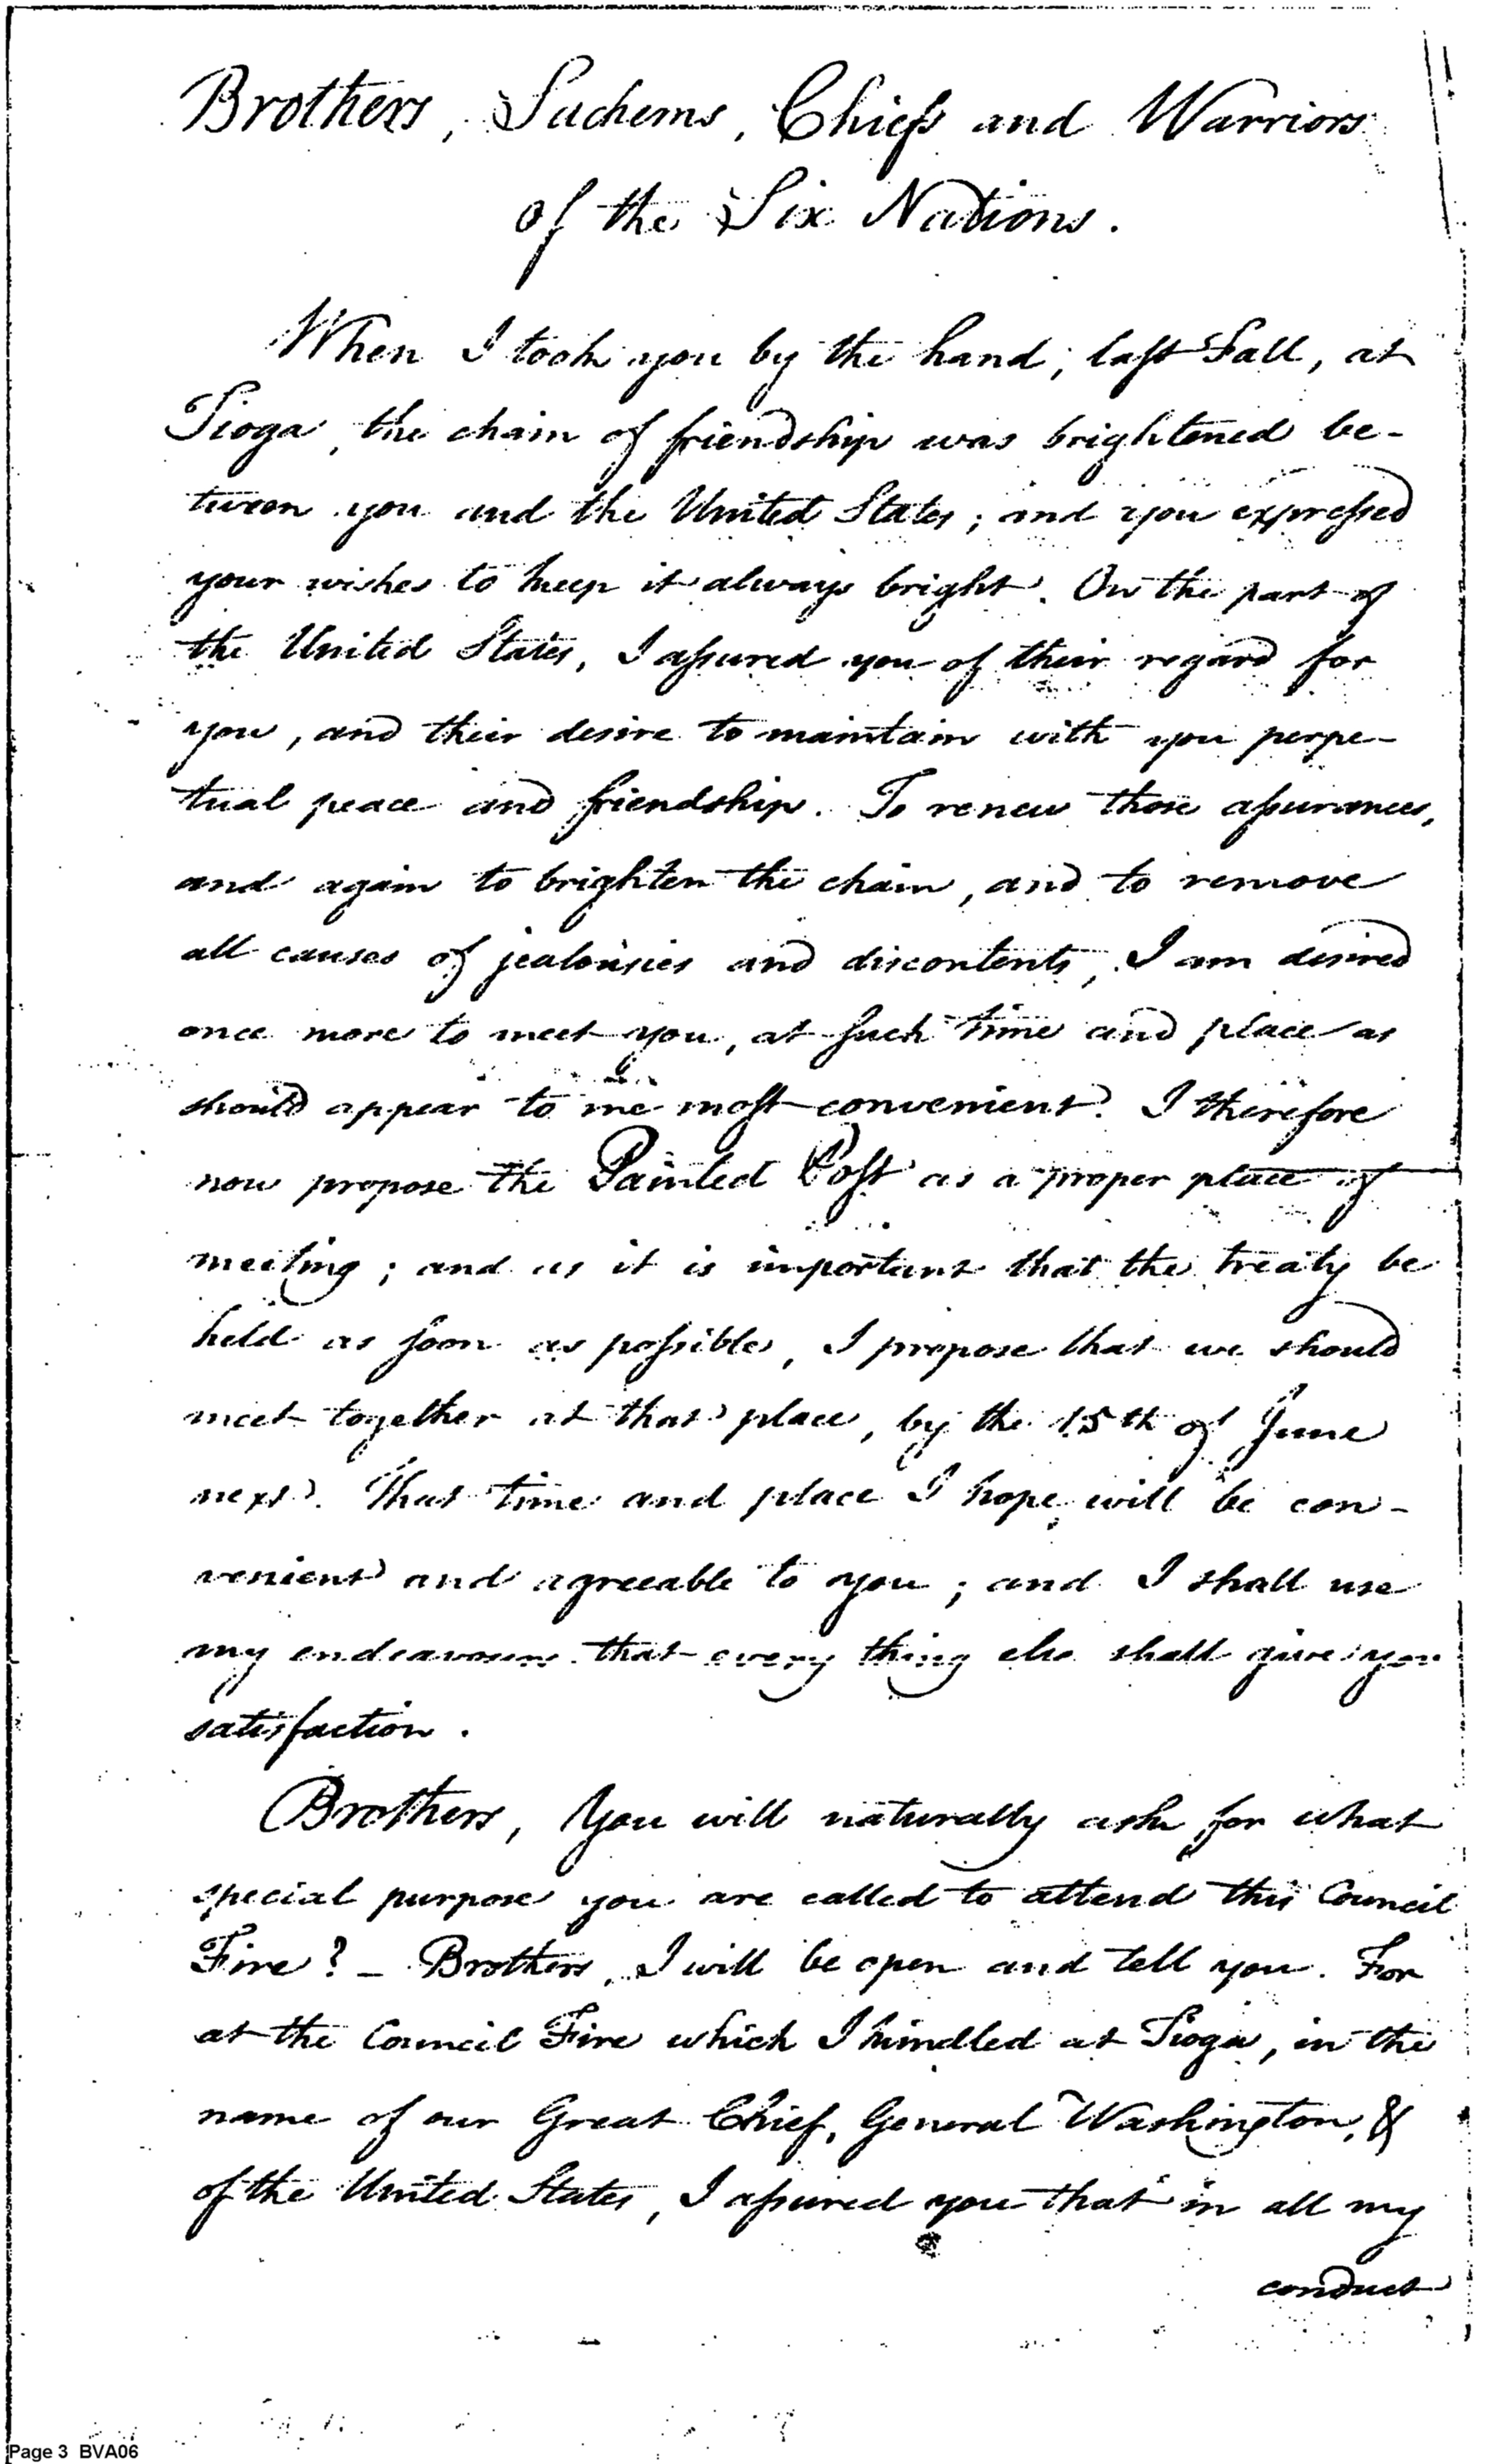 Brothers, Sachems, Chiefs and Warriors
of the Six Nations.
When I took you by the hand, last Fall, at
Tioga, the chain of friendship was brightened be-
tween you and the United States; and you expressed
your wishes to keep it always bright. On the part of
the United States, I assured you of their regard for
you, and their desire to maintain with you perpe-
tual peace and friendship. To renew those assurances,
and again to brighten the chain, and to remove
all causes of jealousies and discontents, I am desired
once more to meet you, at such time and place as
should appear to me most convenient. I therefore
now propose the Painted Post as a proper place of
meeting; and as it is important that the treaty be
held as soon as possible, I propose that we should
meet together at that place, by the 15th of June
next. That time and place I hope will be con-
venient and agreeable to you; and I shall use
my endeavours that every thing else shall give you
satisfaction.
Brothers, You will naturally ask for what
special purpose you are called to attend this Council
Fire? – Brothers, I will be open and tell you. For
at the Council Fire which I kindled at Tioga, in the
name of our Great Chief, General Washington, &
of the United States, I assured you that in all my
conduct
Page 3 BVA06